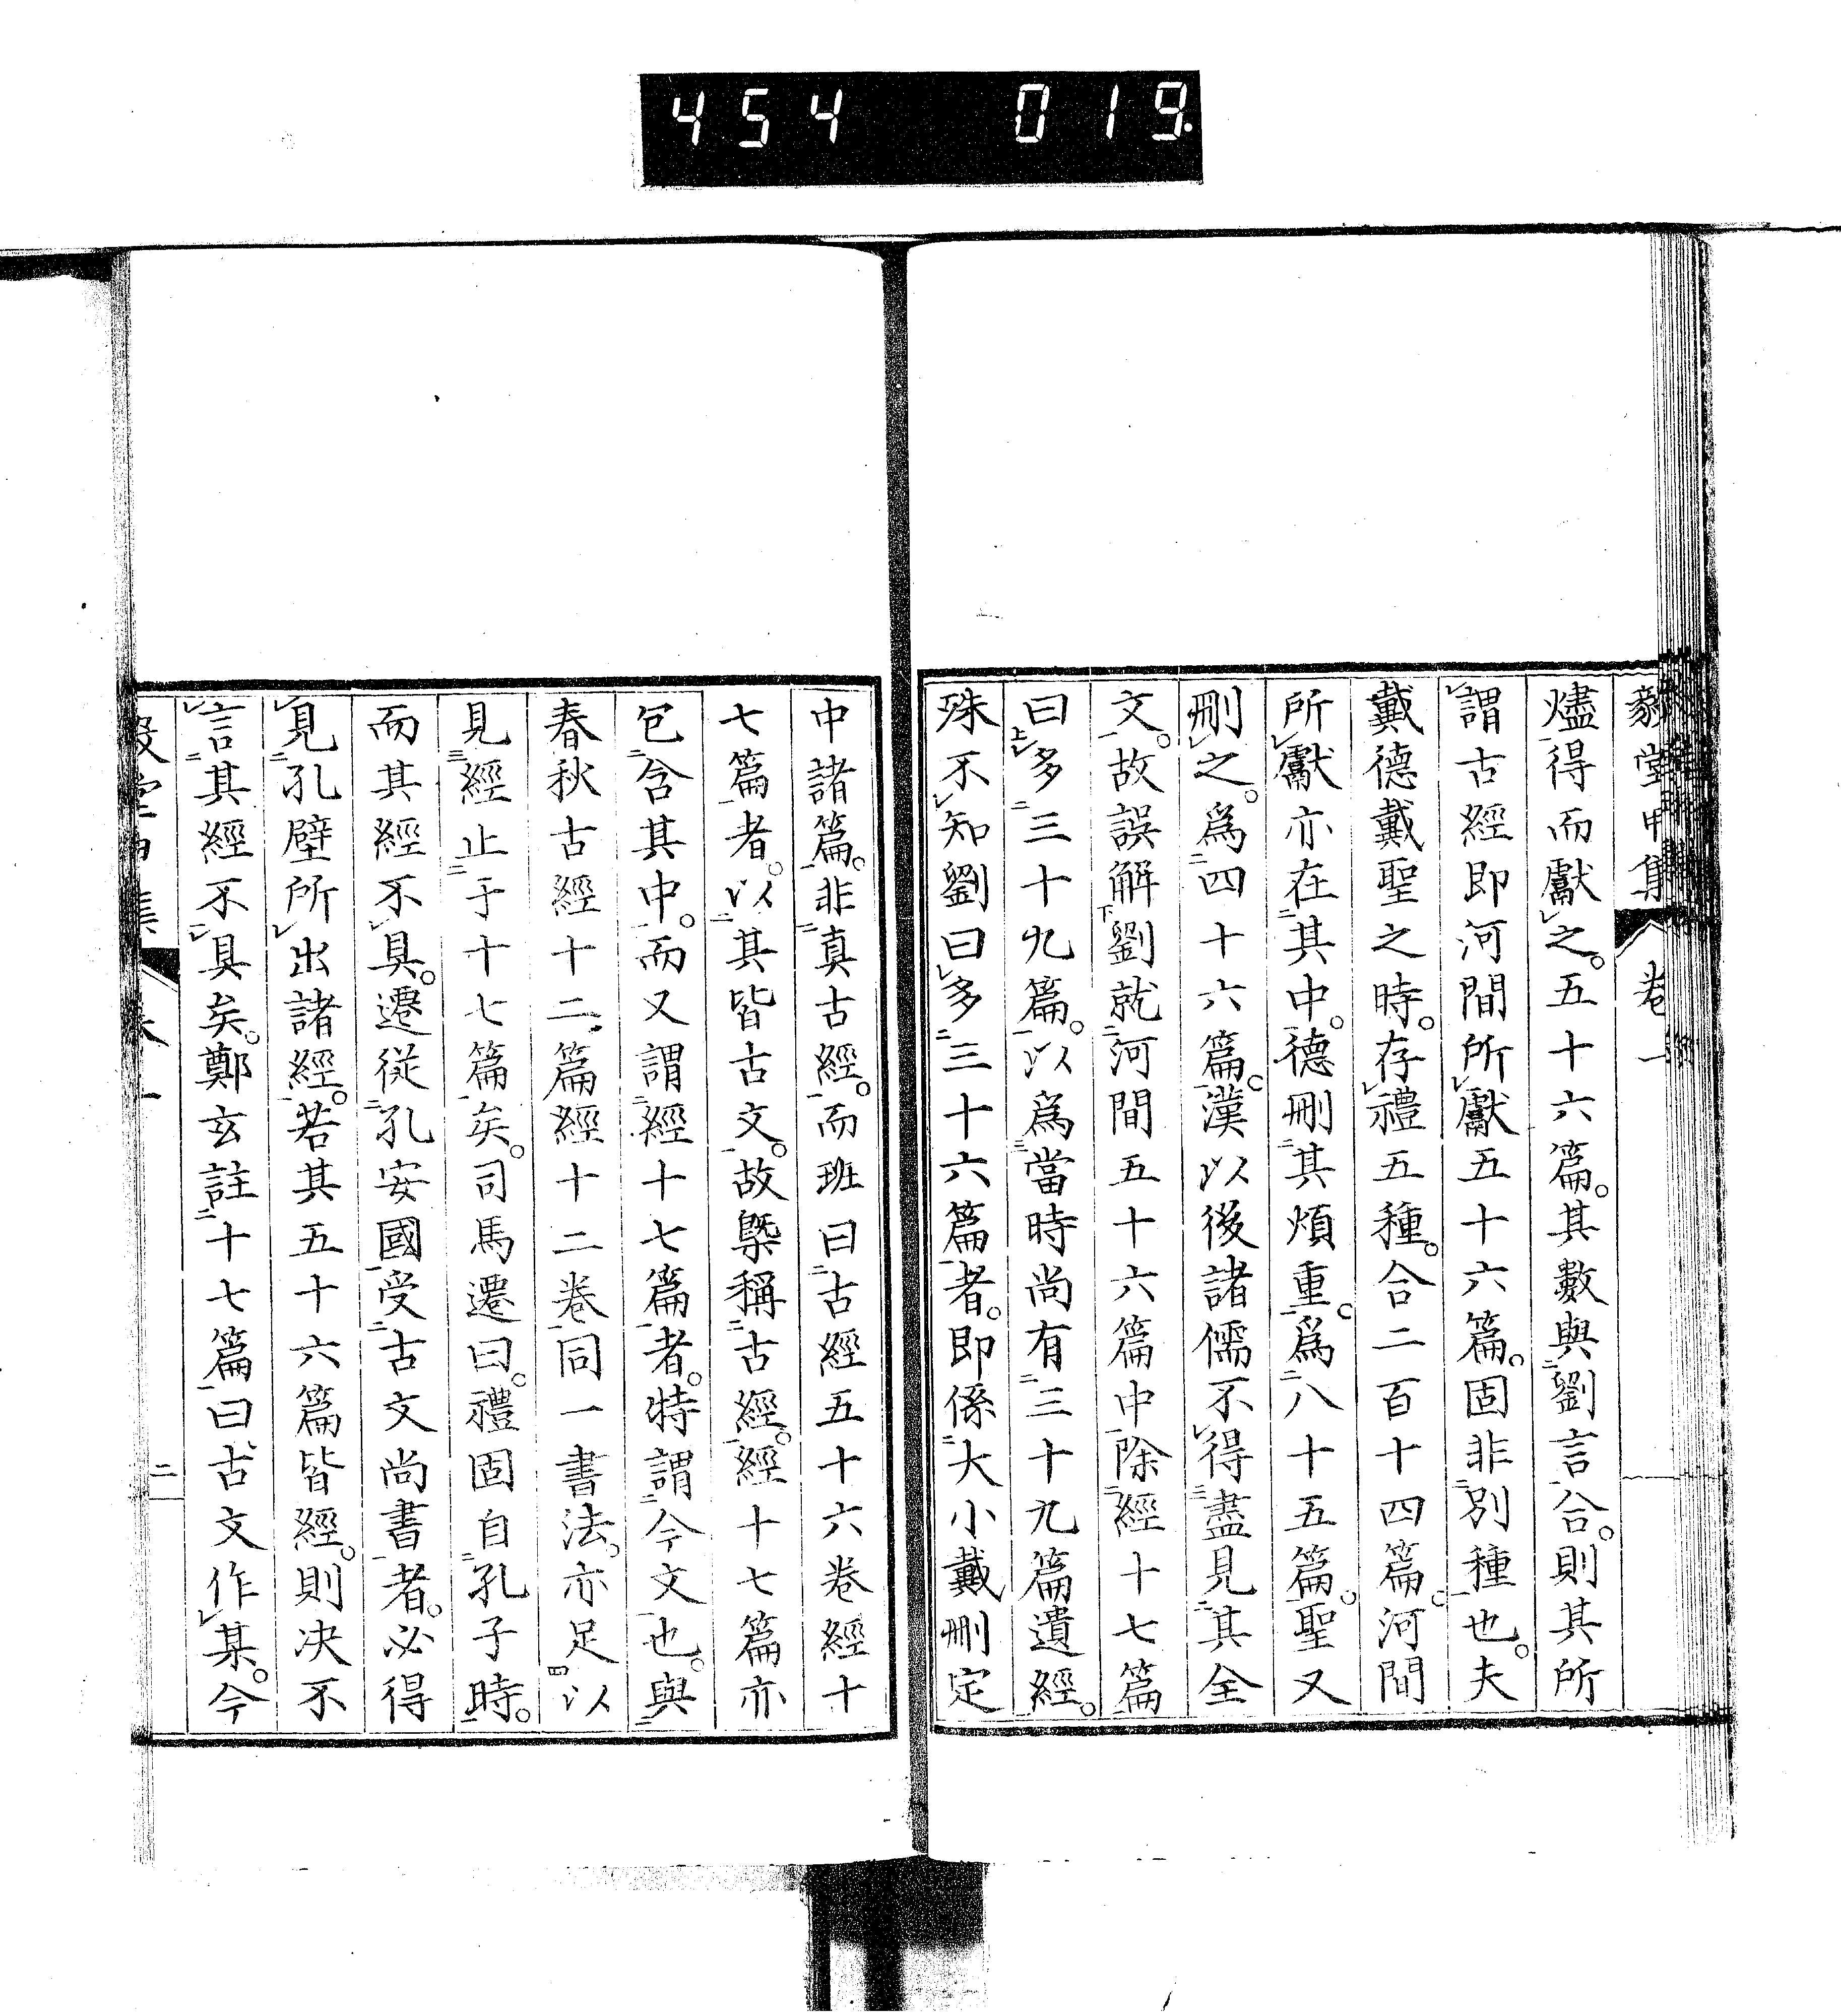 454 019
毅堂甲集 卷一
燼得而獻之。五十六篇。其數與劉言合。則其所
謂古經即河間所獻五十六篇。固非別種也。夫
戴德戴聖之時。存禮五種。合二百十四篇。河間
所獻亦在其中。德刪其煩重。爲八十五篇。聖又
刪之。爲四十六篇。漢以後諸儒不得盡見其全
文。故誤解劉就河間五十六篇中除經十七篇
曰多三十九篇。以爲當時尚有三十九篇遺經。
殊不知劉曰多三十六篇者。即係大小戴刪定
中諸篇。非真古經。而班曰古經五十六卷經十
七篇者。以其皆古文。故槩稱古經。經十七篇亦
包含其中。而又謂經十七篇者。特謂今文也。與
春秋古經十二篇經十二卷同一書法。亦足以
見經止于十七篇矣。司馬遷曰。禮固自孔子時。
而其經不具。遷從孔安國受古文尚書者。必得
見孔壁所出諸經。若其五十六篇皆經。則决不
言其經不具矣。鄭玄註十七篇曰古文作某。今
二